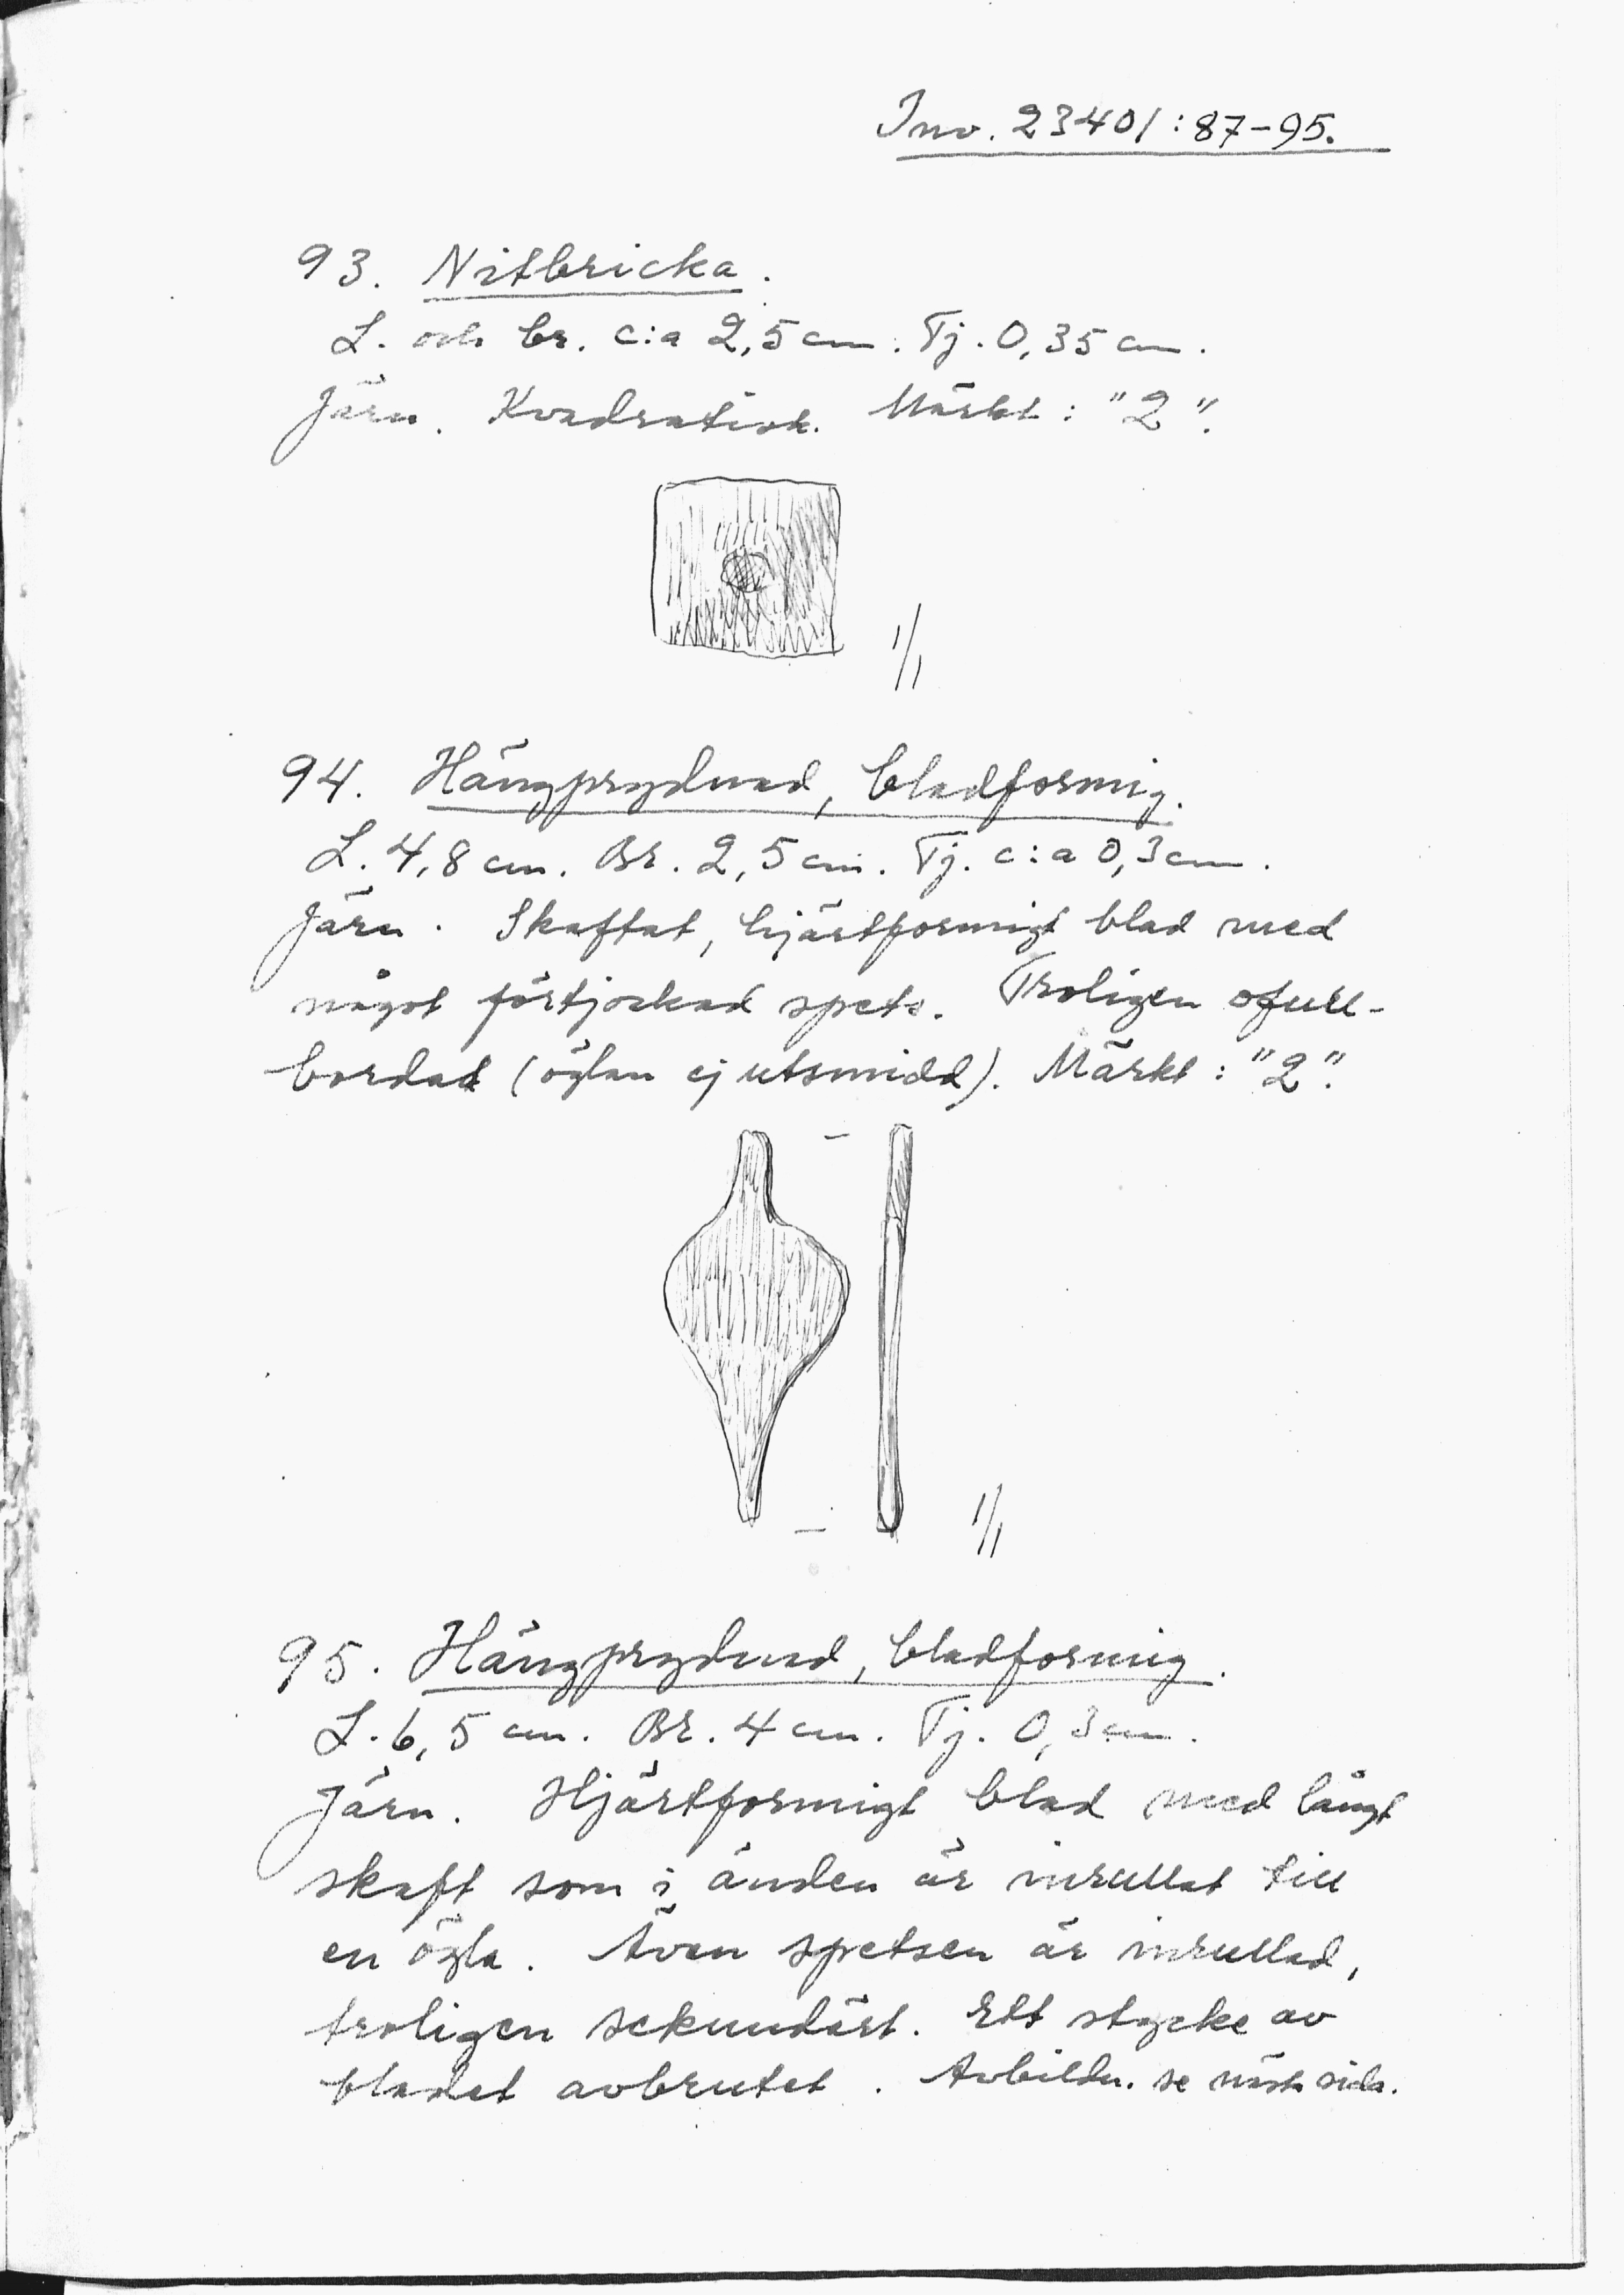 Inv. 23401:87-95.
93. Nitbricka.
L. och br. c:a 2,5 cm. Tj. 0,35 cm.
Järn. Kvadratisk. Märkt: "2".
1/1
94. Hängprydnad, bladformig.
L. 4,8 cm. Br. 2,5 cm. Tj. c:a 0,3 cm.
Järn. Skaftat, hjärtformigt blad med
något förtjockad spets. Troligen ofull-
bordad (öglan ej utsmidd). Märkt: "2".
1/1
95. Hängprydnad, bladformig.
L. 6,5 cm. Br. 4 cm. Tj. 0,3 cm.
Järn. Hjärtformigt blad med långt
skaft som i änden är inrullat till
en ögla. Även spetsen är inrullad,
troligen sekundärt. Ett stycke av
bladet avbrutet. Avbildn. se nästa sida.